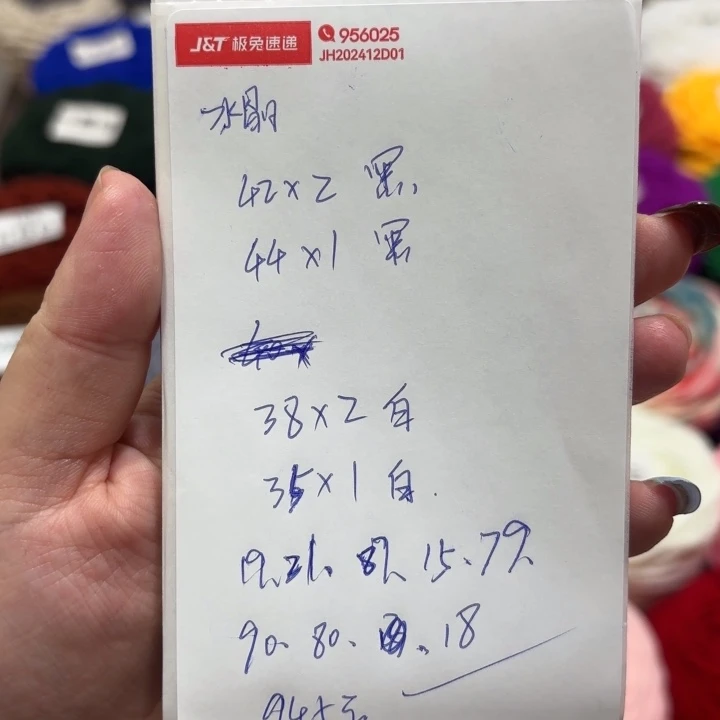 J&T 极兔速递 956025
JH202412D01
水晶
42×2 黑
44×1 黑
38×2 白
35×1 白.
19. 21. 15. 79.
90. 80. 18
94×